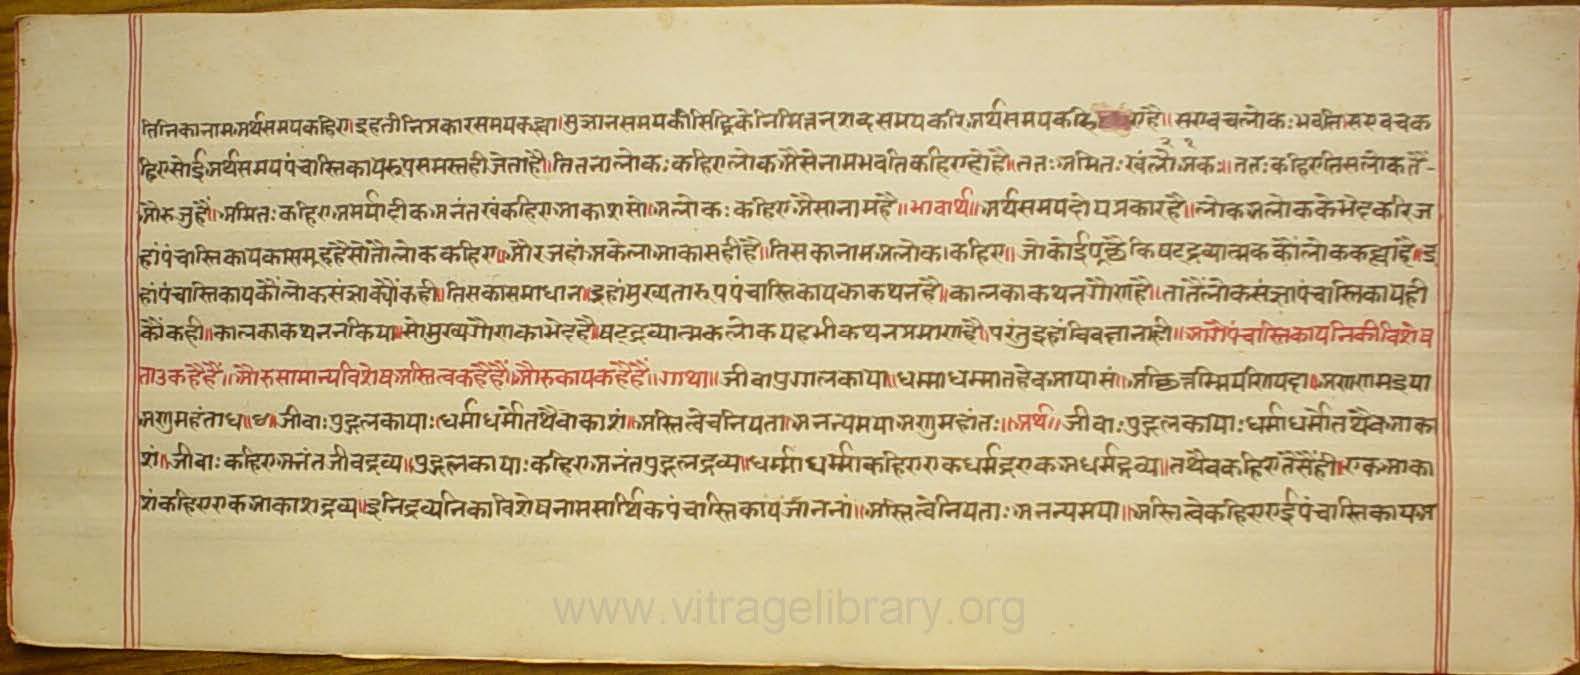 तिनिकानाम अर्थसमय कहिए। इह तीनि प्रकार समय कह्या। सु ज्ञानसमयकी सिद्धिके निमित्त न शब्दसमय करि अर्थसमय कहि एहै॥ सएवचलोकः भवति। स एव च क
हिए सोई अर्थसमय पंचास्तिकायरूप समस्तही जेता है॥ तितना लोकः कहिए लोक असे नाम भवति कहिए हो है॥ ततः अमितः खं लो अकः॥ ततः कहिए तिस लोकतैं-
और जु है॥ अमितः कहिए अमर्यादीक अनंत खं कहिए आकाश सो॥ अलोकः कहिए अैसा नाम है॥ भावार्थ॥ अर्थसमय दोय प्रकार है॥ लोक अलोकके भेद करि ज
हां पंचास्तिकायका समूह है सो तौ लोक कहिए॥ और जहां अकेला आकासही है॥ तिसका नाम अलोक। कहिए॥ जो कोई पूछै कि षट्द्रव्यात्मककौं लोक कह्या है॥ इ
हां पंचास्तिकायकौं लोकसंज्ञा क्यौं कही॥ तिसका समाधान॥ इहां मुख्यतारूप पंचास्तिकायका कथन है॥ कालका कथन गौण है॥ तातैं लोकसंज्ञा पंचास्तिकायही
कौं कही॥ कालका कथन न किया॥ सो मुख्य गौणका भेद है॥ षट्द्रव्यात्मक लोक यह भी कथन प्रमाण है॥ परंतु इहां विवक्षा नाही॥ आगै पंचास्तिकायनिकी विशेष
ता उ कहै हैं॥ औरु सामान्य विशेष अस्तित्व कहै हैं॥ औरु काय कहै हैं॥ गाथा॥ जीवा पुगालकाया॥ धम्माधम्मा तहेव आयासं॥ अछित्तम्मि य णियदा॥ अणणामइया
अणुमहंता ध॥ ४॥ जीवाः पुद्गलकायाः। धर्माधर्मौ तथैवाकाशं॥ अस्तित्वे च नियता। अनन्यमया अणुमहांतः॥ अर्थ॥ जीवाः पुद्गलकायाः धर्माधर्मौ तथैव आका
शं॥ जीवाः कहिए अनंत जीवद्रव्य॥ पुद्गलकायाः कहिए अनंत पुद्गलद्रव्य॥ धर्म्माधर्म्मा कहिए एक धर्मद्रएक अधर्मद्रव्य॥ तथैव कहिए तैसैंही॥ एक आका
शं कहिए एक आकाशद्रव्य॥ इनि द्रव्यनिका विशेष नाम सार्थिक पंचास्तिकाय जाननां॥ अस्तित्वे नियताः अनन्यमया॥ अस्तित्वे कहिए एई पंचास्तिकाय अ
www.vitragelibrary.org